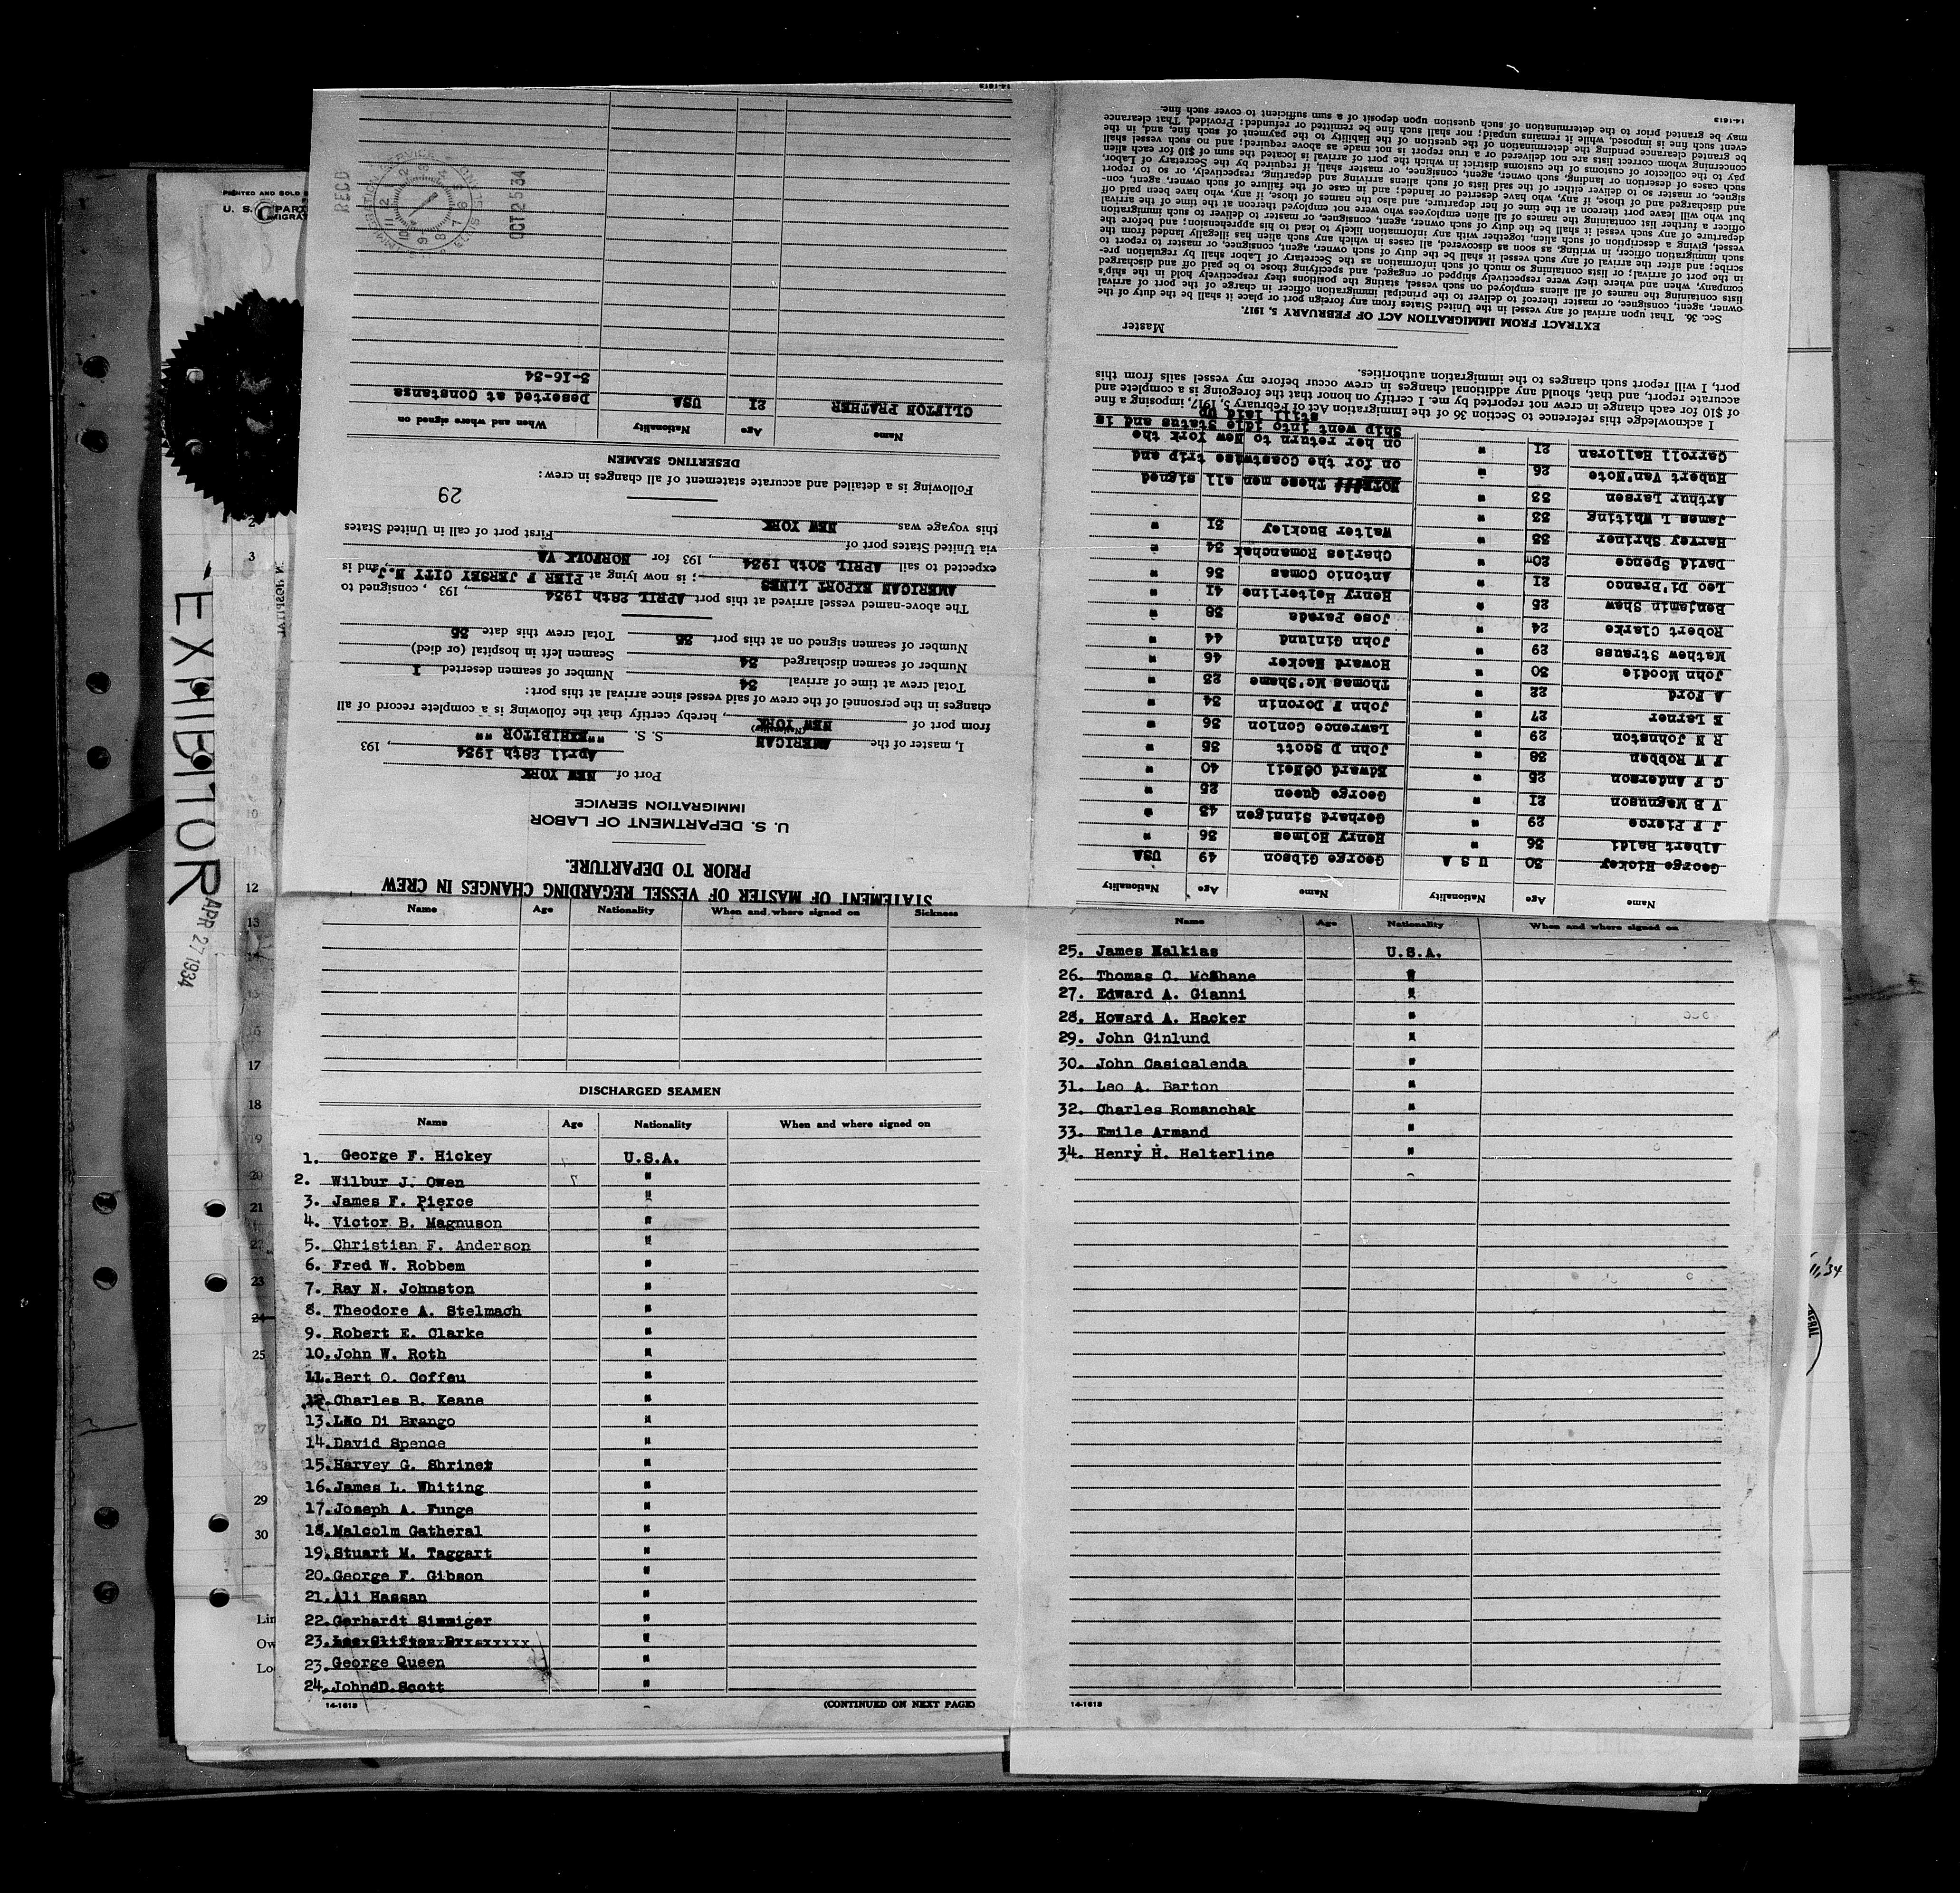 STATEMENT OF MASTER OF VESSEL REGARDING CHANGES IN CREW
PRIOR TO DEPARTURE.
U. S. DEPARTMENT OF LABOR
IMMIGRATION SERVICE
Port of NEW YORK
April 28th 1934, 193
I, master of the AMERICAN S. S. ""EXHIBITOR ""
(Nationality)
from port of NEW YORK, hereby certify that the following is a complete record of all
changes in the personnel of the crew of said vessel since arrival at this port:
Total crew at time of arrival 34 Number of seamen deserted 1
Number of seamen discharged 34 Seamen left in hospital (or died)
Number of seamen signed on at this port 35 Total crew this date 35
The above-named vessel arrived at this port APRIL 28th 1934, 193 , consigned to
AMERICAN EXPORT LINES; is now lying at PIER F JERSEY CITY N.J., and is
expected to sail APRIL 30th 1934, 193 for NORFOLK VA
via United States port of First port of call in United States
this voyage was NEW YORK
29
Following is a detailed and accurate statement of all changes in crew:
DESERTING SEAMEN
Name Age Nationality When and where signed on
CLIFTON PRATHER 21 USA Deserted at Constanza
3-16-34
RECD
OCT 25 34
14-1613
Name Age Nationality Name Age Nationality
George Hickey 30 U S A George Gibson 49 USA
Albert Baldi 36 " Henry Holmes 36 "
J F Pierce 29 " Gerhard Sinnigen 43 "
V B Magnuson 21 " George Queen 25 "
C F Anderson 25 " Edward O8Neil 40 "
F W Robben 38 " John D Scott 35 "
R N Johnston 29 " Lawrence Conlon 36 "
E Larner 27 " John F Doronin 34 "
A Ford 22 " Thomas Mc'Shane 23 "
John Moodie 30 " Howard Hacker 46 "
Mathew Strauss 29 " John Ginlund 44 "
Robert Clarke 24 " Jose Parada 38 "
Benjamin Shaw 25 " Henry Helterline 41 "
Leo Di'Branco 21 " Antonio Comas 36 "
David Spence 20 " Charles Romanchak 34 "
Harvey Shriner 33 " Walter Buckley 31 "
James L Whiting 33 "
Arthur Larsen 33 " NOTE### These men all signed
Hubert Van'Note 26 " on for the Coastwise trip and
Carroll Halloran 21 " on her return to New York the
Ship went into idle Status and is
still laid up
I acknowledge this reference to Section 36 of the Immigration Act of February 5, 1917, imposing a fine
of $10 for each change in crew not reported by me. I certify on honor that the foregoing is a complete and
accurate report, and that, should any additional changes in crew occur before my vessel sails from this
port, I will report such changes to the immigration authorities.
Master
EXTRACT FROM IMMIGRATION ACT OF FEBRUARY 5, 1917.
Sec. 36. That upon arrival of any vessel in the United States from any foreign port or place it shall be the duty of the
owner, agent, consignee, or master thereof to deliver to the principal immigration officer in charge of the port of arrival
lists containing the names of all aliens employed on such vessel, stating the positions they respectively hold in the ship's
company, when and where they were respectively shipped or engaged, and specifying those to be paid off and discharged
in the port of arrival; or lists containing so much of such information as the Secretary of Labor shall by regulation pre-
scribe; and after the arrival of any such vessel it shall be the duty of such owner, agent, consignee, or master to report to
such immigration officer, in writing, as soon as discovered, all cases in which any such alien has illegally landed from the
vessel, giving a description of such alien, together with any information likely to lead to his apprehension; and before the
departure of any such vessel it shall be the duty of such owner, agent, consignee, or master to deliver to such immigration
officer a further list containing the names of all alien employees who were not employed thereon at the time of the arrival
but who will leave port thereon at the time of her departure, and also the names of those, if any, who have been paid off
and discharged and of those, if any, who have deserted or landed; and in case of the failure of such owner, agent, con-
signee, or master so to deliver either of the said lists of such aliens arriving and departing, respectively, or so to report
such cases of desertion or landing, such owner, agent, consignee, or master, shall, if required by the Secretary of Labor,
pay to the collector of customs of the customs district in which the port of arrival is located the sum of $10 for each alien
concerning whom correct lists are not delivered or a true report is not made as above required; and no such vessel shall
be granted clearance pending the determination of the question of the liability to the payment of such fine, and, in the
event such fine is imposed, while it remains unpaid; nor shall such fine be remitted or refunded: Provided, That clearance
may be granted prior to the determination of such question upon deposit of a sum sufficient to cover such fine.
14-1613
EXHIBITOR
APR 27 1934
Name Age Nationality When and where signed on Sickness
DISCHARGED SEAMEN
Name Age Nationality When and where signed on
1. George F. Hickey U.S.A.
2. Wilbur J. Owen "
3. James F. Pierce "
4. Victor B. Magnuson "
5. Christian F. Anderson "
6. Fred W. Robbem "
7. Ray N. Johnston "
8. Theodore A. Stelmach "
9. Robert E. Clarke "
10. John W. Roth "
11. Bert O. Coffeu "
12. Charles B. Keane "
13. Leo Di Brango "
14. David Spence "
15. Harvey G. Shriner "
16. James L. Whiting "
17. Joseph A. Funge "
18. Malcolm Gatheral "
19. Stuart M. Taggart "
20. George F. Gibson "
21. Ali Hassan "
22. Gerhardt Sinniger "
23. "
23. George Queen
24. John D. Scott "
14-1613 (CONTINUED ON NEXT PAGE)
Name Age Nationality When and where signed on
25. James Malkias U.S.A.
26. Thomas C. McShane "
27. Edward A. Gianni "
28. Howard A. Hacker "
29. John Ginlund "
30. John Casicalenda "
31. Leo A. Barton "
32. Charles Romanchak "
33. Emile Armand "
34. Henry H. Helterline "
14-1613